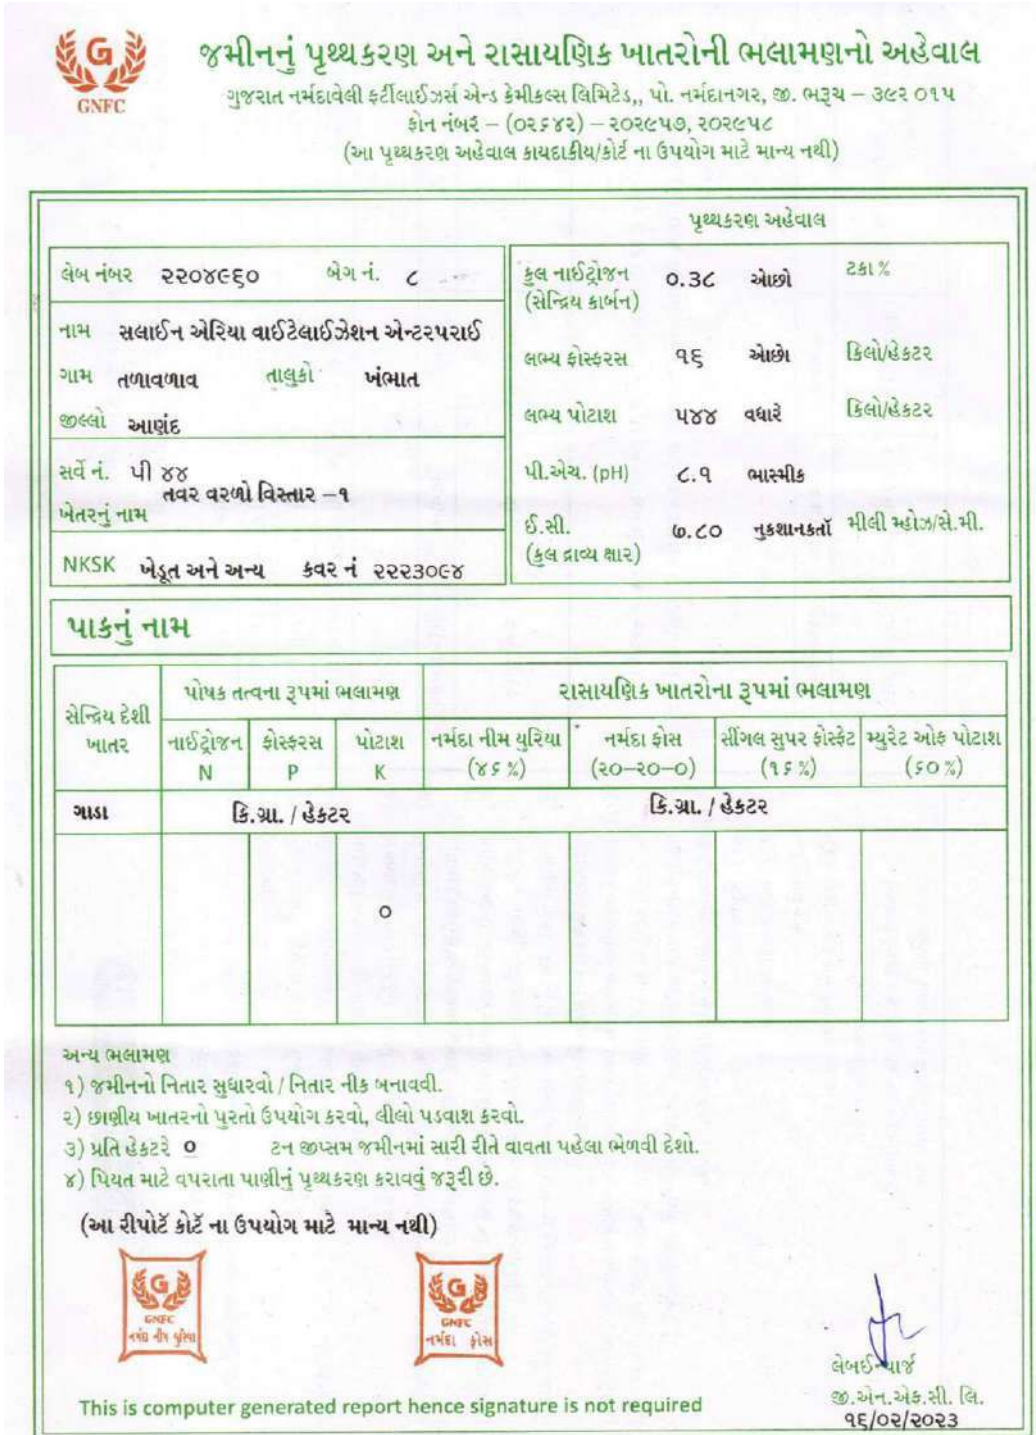 જમીનનું પૃથ્થકરણ અને રાસાયણિક ખાતરોની ભલામણનો અહેવાલ
GNFC
ગુજરાત નર્મદાવેલી ફર્ટીલાઈઝર્સ એન્ડ કેમીકલ્સ લિમિટેડ,, પો. નર્મદાનગર, જી. ભરૂચ – ૩૯૨ ૦૧૫
ફોન નંબર – (૦૨૬૪૨) – ૨૦૨૯૫૭, ૨૦૨૯૫૮
(આ પૃથ્થકરણ અહેવાલ કાયદાકીય/કોર્ટ ના ઉપયોગ માટે માન્ય નથી)
પૃથ્થકરણ અહેવાલ
લેબ નંબર ૨૨૦૪૯૬૦ બેગ નં. ૮
નામ સલાઈન એરિયા વાઈટેલાઈઝેશન એન્ટરપરાઈ
ગામ તળાવળાવ તાલુકો ખંભાત
જીલ્લો આણંદ
સર્વે નં. પી ૪૪
તવર વરળો વિસ્તાર –૧
ખેતરનું નામ
NKSK ખેડૂત અને અન્ય કવર નં ૨૨૨૩૦૯૪
કુલ નાઈટ્રોજન ૦.૩૮ ઓછો ટકા %
(સેન્દ્રિય કાર્બન)
લભ્ય ફોસ્ફરસ ૧૬ ઓછો કિલો/હેકટર
લભ્ય પોટાશ ૫૪૪ વધારે કિલો/હેકટર
પી.એચ. (pH) ૮.૧ ભાસ્મીક
ઈ.સી. ૭.૮૦ નુકશાનકર્તા મીલી મ્હોઝ/સે.મી.
(કુલ દ્રાવ્ય ક્ષાર)
પાકનું નામ
સેન્દ્રિય દેશી ખાતર પોષક તત્વના રૂપમાં ભલામણ રાસાયણિક ખાતરોના રૂપમાં ભલામણ
નાઈટ્રોજન ફોસ્ફરસ પોટાશ નર્મદા નીમ યુરિયા નર્મદા ફોસ સીંગલ સુપર ફોસ્ફેટ મ્યુરેટ ઓફ પોટાશ
N P K (૪૬ %) (૨૦–૨૦–૦) (૧૬ %) (૬૦ %)
ગાડા કિ.ગ્રા. / હેકટર કિ.ગ્રા. / હેકટર
૦
અન્ય ભલામણ
૧) જમીનનો નિતાર સુધારવો / નિતાર નીક બનાવવી.
૨) છાણીય ખાતરનો પુરતો ઉપયોગ કરવો, લીલો પડવાશ કરવો.
૩) પ્રતિ હેકટરે ૦ ટન જીપ્સમ જમીનમાં સારી રીતે વાવતા પહેલા ભેળવી દેશો.
૪) પિયત માટે વપરાતા પાણીનું પૃથ્થકરણ કરાવવું જરૂરી છે.
(આ રીપોર્ટ કોર્ટ ના ઉપયોગ માટે માન્ય નથી)
GNFC
નર્મદા નીમ યુરિયા
GNFC
નર્મદા ફોસ
લેબઈન્ચાર્જ
જી.એન.એફ.સી. લિ.
૧૬/૦૨/૨૦૨૩
This is computer generated report hence signature is not required